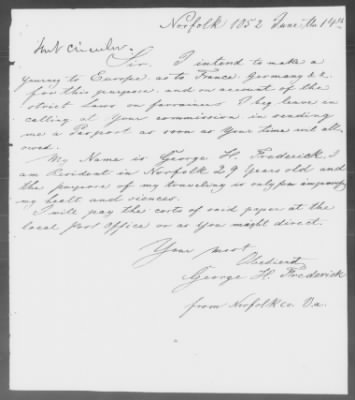 Norfolk 1852 June the 14th
Sent circular.
Sir. I intend to make a
yourney to Europe as to France Germany & c
for this purpose. and on account of the
strict Laws on forrainers I beg leave in
calling at Your commission in sending
me a Parpost as soon as Your time will all-
owed.
My Name is George H. Frederick, I
am Resident in Norfolk 29 Years old and
the purpose of my traveling is only for improving
my healt and siences.
I will pay the costs of said paper at the
local post Office or as You might direct.
Your most
Obedient
George H. Frederick
from Norfolk co. Va.